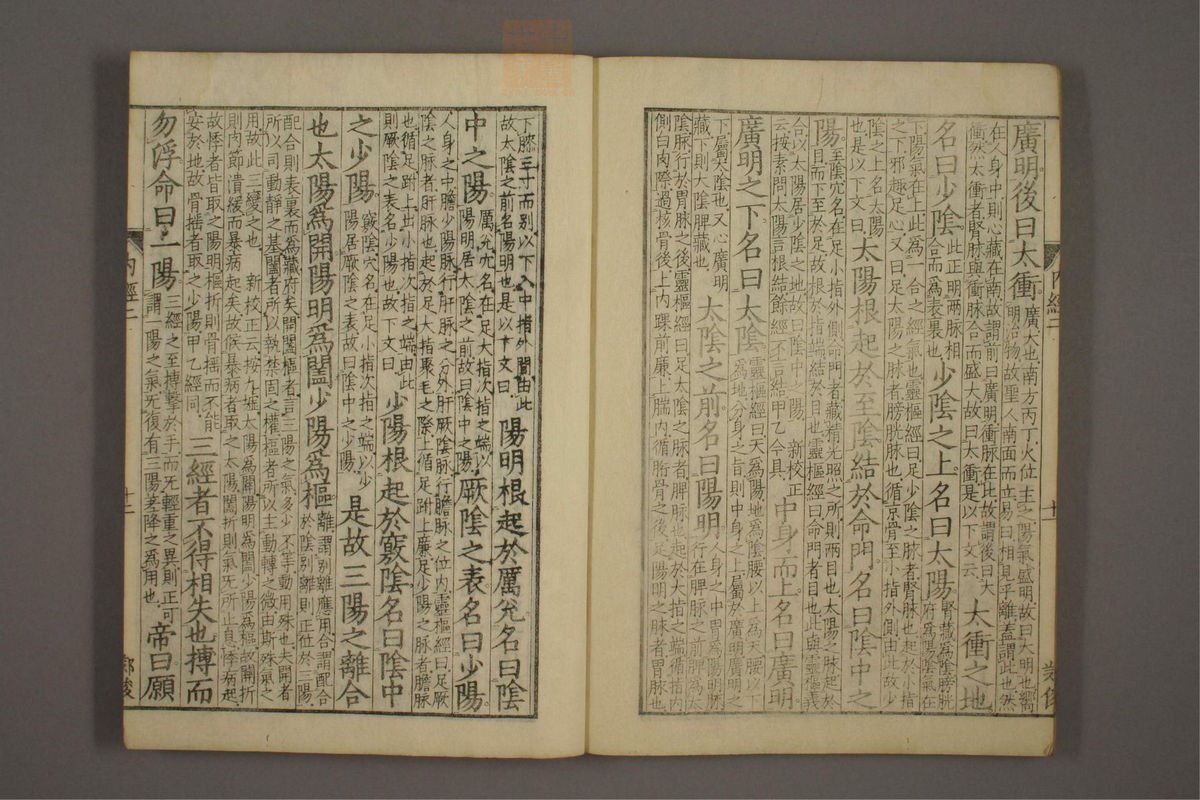 廣明後曰太衝
廣大也南方丙丁火位主之陽氣盛明故曰大明也嚮
明治物故聖人南面而立易曰相見乎離蓋謂此也然
在人身中則心藏在南故謂前曰廣明衝脉在北故謂後曰太
衝然太衝者腎脉與衝脉合而盛大故曰太衝是以下文云
太衝之地
名曰少陰
此正明兩脉相
合而為表裏也
少陰之上名曰太陽
腎藏為陰膀胱
府為陽陰氣在
下陽氣在上此為一合之經氣也靈樞經曰足少陰之脉者腎脉也起於小指
之下邪趣足心又曰足太陽之脉者膀胱脉也循京骨至小指外側由此故少
陰之上名太陽
也是以下文曰
太陽根起於至陰結於命門名曰陰中之
陽
至陰穴名在足小指外側命門者藏精光照之所則兩目也太陽之脉起於
目而下至於足故根於指端結於目也靈樞經曰命門者目也此與靈樞義
合以太陽居少陰之地故曰陰中之陽 新校正
云按素問太陽言根結餘經不言結甲乙今具
中身而上名曰廣明
廣明之下名曰太陰
靈樞經曰天為陽地為陰腰以上為天腰以下
為地分身之旨則中身之上屬於廣明廣明之
下屬太陰也又心廣明
藏下則太陰脾藏也
太陰之前名曰陽明
人身之中胃為陽明脉
行在脾脉之前脾為太
陰脉行於胃脉之後靈樞經曰足太陰之脉者脾脉也起於大指之端循指內
側白肉際過核骨後上內踝前廉上腨內循胻骨之後足陽明之脉者胃脉也
下膝三寸而別以下入中指外間由此
故太陰之前名陽明也是以下文曰
陽明根起於厲兌名曰陰
中之陽
厲兌穴名在足大指次指之端以
陽明居太陰之前故曰陰中之陽
厥陰之表名曰少陽
人身之中膽少陽脉行肝脉之分外肝厥陰脉行膽脉之位內靈樞經曰足厥
陰之脉者肝脉也起於足大指聚毛之際上循足跗上廉足少陽之脉者膽脉
也循足跗上出小指次指之端由此
則厥陰之表名少陽也故下文曰
少陽根起於竅陰名曰陰中
之少陽
竅陰穴名在足小指次指之端以少
陽居厥陰之表故曰陰中之少陽
是故三陽之離合
也太陽為開陽明為闔少陽為樞
離謂別離應用合謂配合
於陰別離則正位於三陽
配合則表裏而為藏府矣開闔樞者言三陽之氣多少不等動用殊也夫開者
所以司動靜之基闔者所以執禁固之權樞者所以主動轉之微由斯殊氣之
用故此三變之也 新校正云按九墟太陽為開陽明為闔少陽為樞故開折
則肉節潰緩而暴病起矣故候暴病者取之太陽闔折則氣无所止息悸病起
故悸者皆取之陽明樞折則骨搖而不能
安於地故骨搖者取之少陽甲乙經同
三經者不得相失也搏而
勿浮命曰一陽
三經之至搏擊於手而无輕重之異則正可
謂一陽之氣无復有三陽差降之為用也
帝曰願
內經二
十二